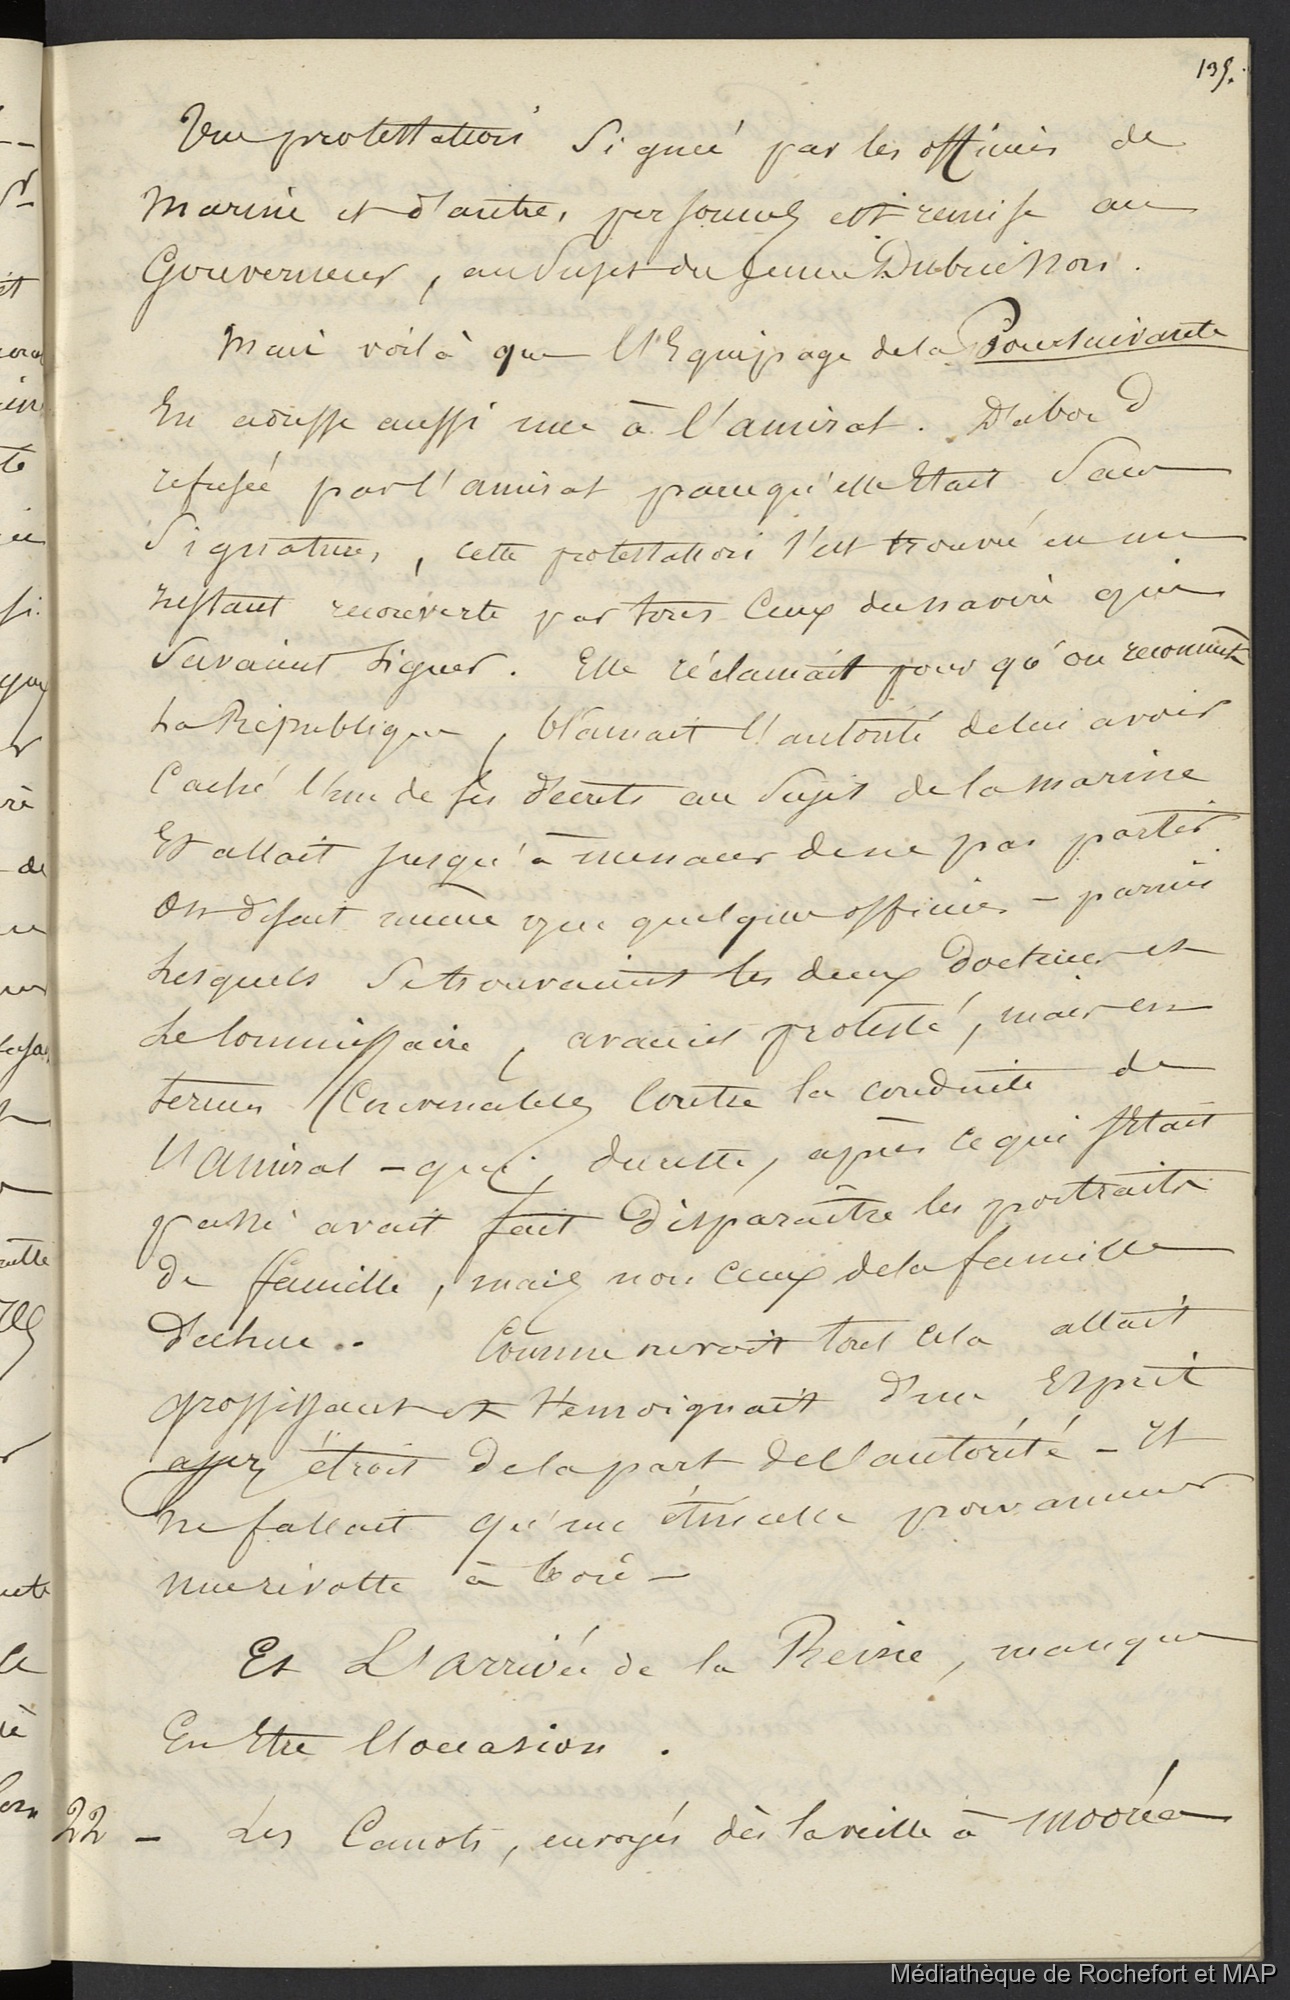 139.
Une protestation signée par les officiers de
marine et d'autres personnes est remise au
Gouverneur, au sujet du jeune Dubrichon.
Mais voilà que l'Equipage de la Poursuivante
En adresse aussi une à l'amiral. D'abord
refusée par l'amiral parcequ'elle Etait Sans
Signatures, cette protestation s'est trouvée en un
instant recouverte par tous Ceux du navire qui
Savaient Signer. Elle réclamait pour qu'on reconnut
La République, blâmait l'autorité de lui avoir
Caché l'un de ses décrets au Sujet de la marine
Et allait jusqu'à menacer de ne pas partir.
On disait même que quelques officiers - parmi
Lesquels Se trouvaient les deux Docteurs et
Le Commissaire, avaient protesté, mais en
termes Convenables Contre la conduite de
l'amiral - qui, du reste, après ce qui s'Etait
passé avait fait Disparaître les portraits
De famille, mais non ceux de la famille
Déchue.. Comme on voit tout cela allait
grossissant et témoignait d'un Esprit
assez étroit de la part de l'autorité - Il
ne fallait qu'une étincelle pour amener
une révolte à bord -
Et L'arrivée de la Reine, manqua
En Etre l'occasion.
22 - Les Canots, envoyés dès la veille à Mooréa
Médiathèque de Rochefort et MAP